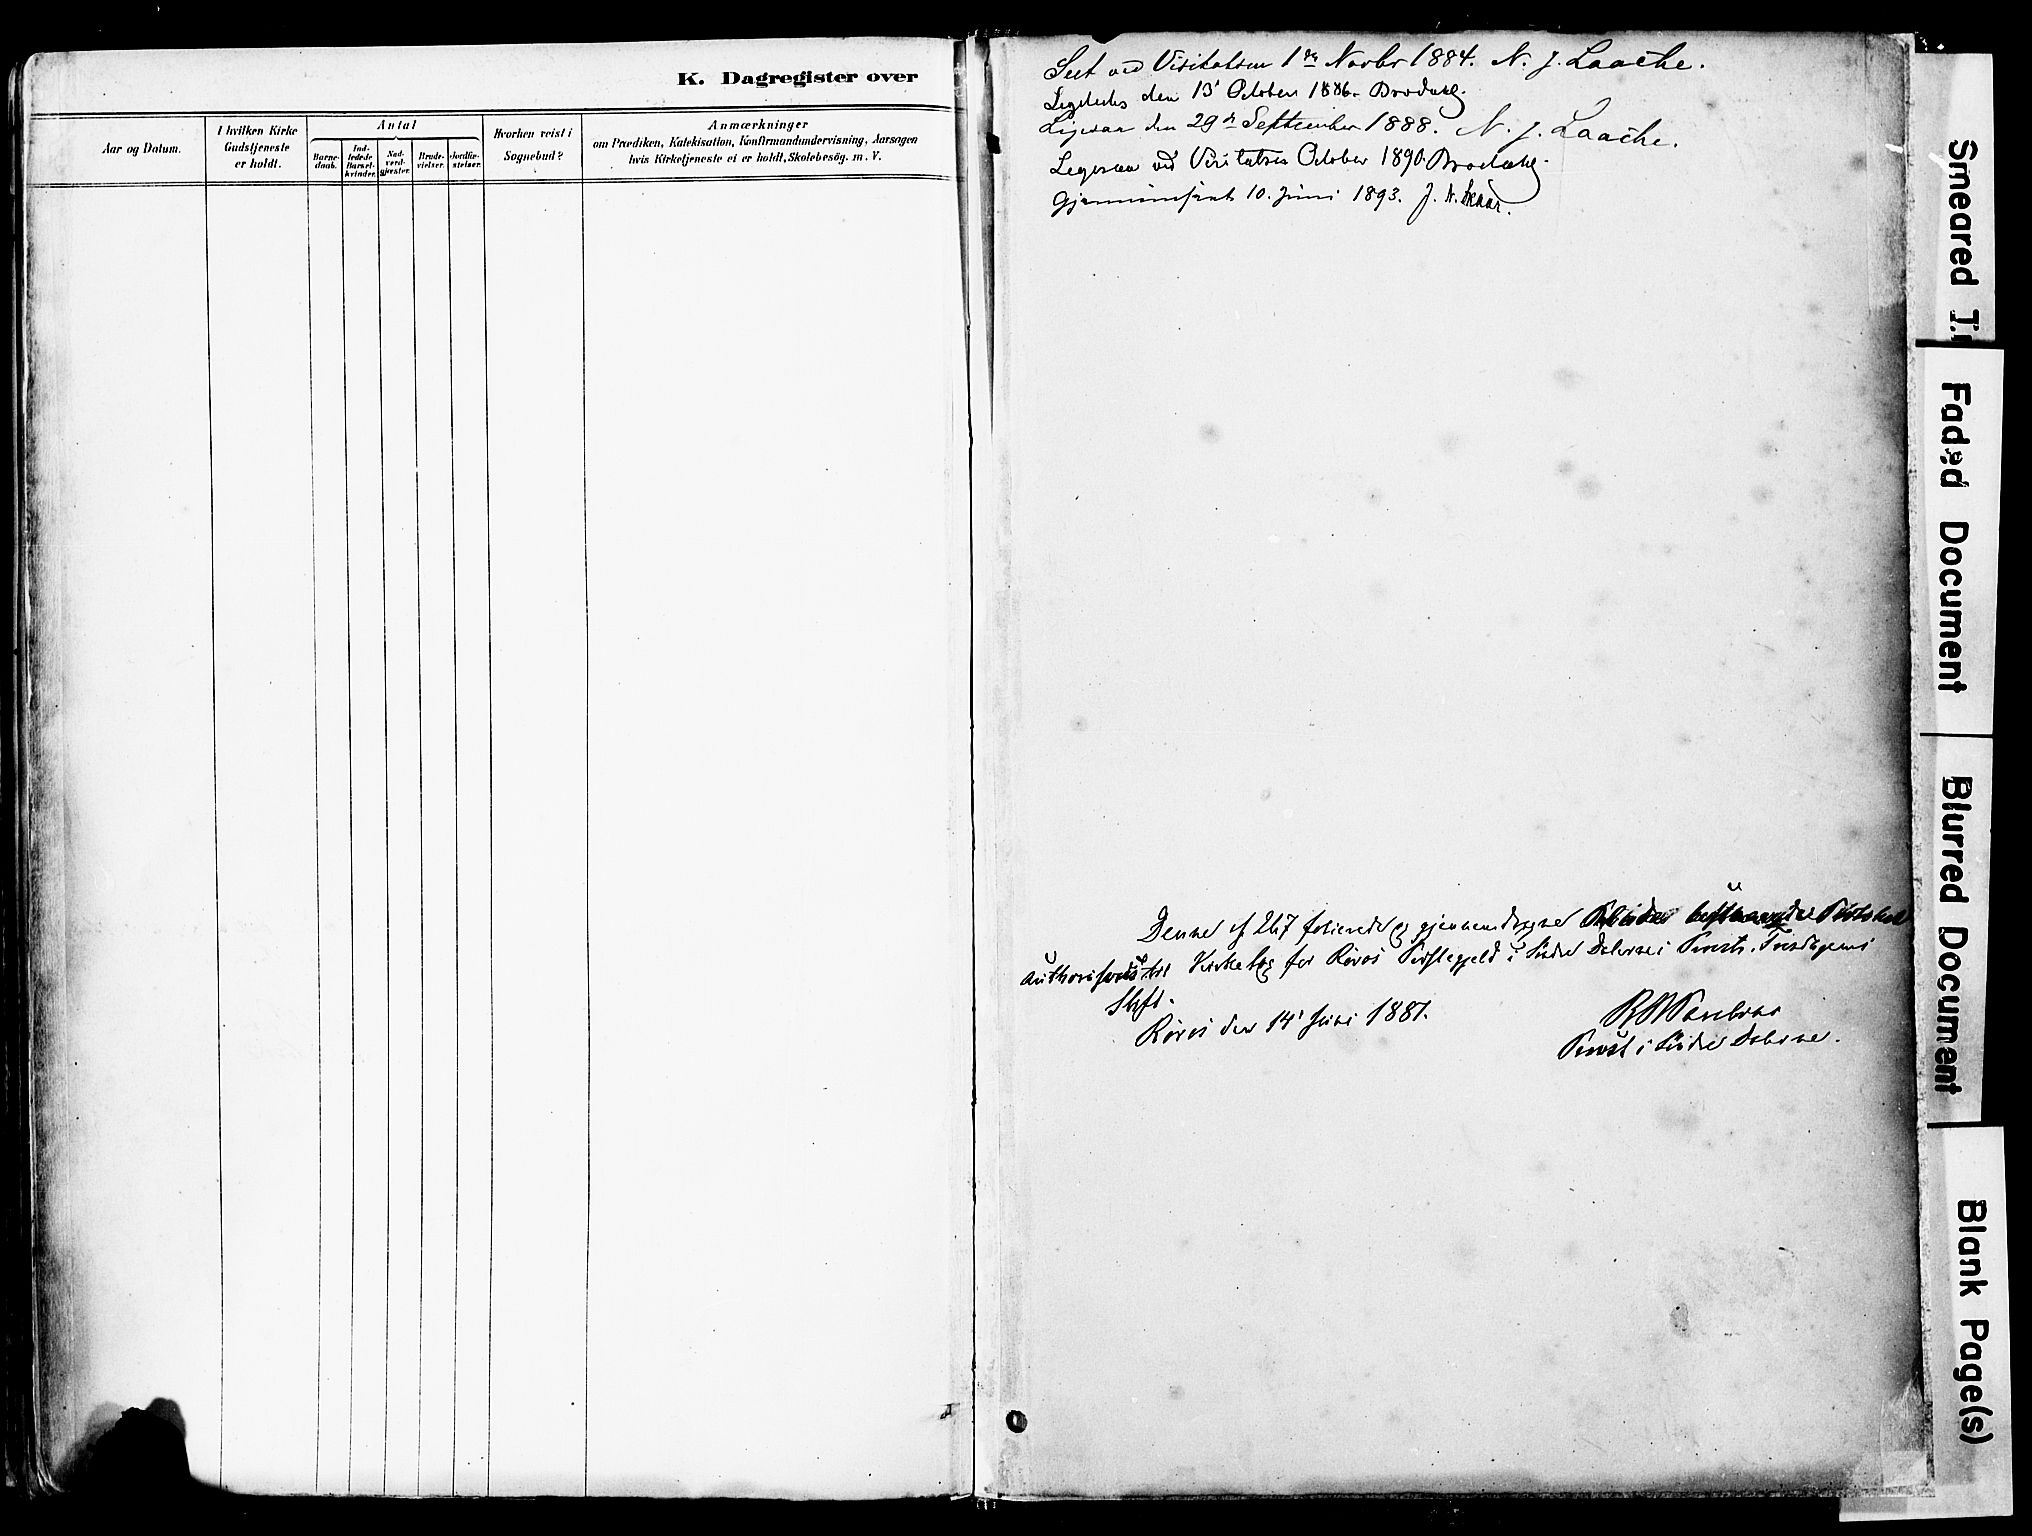 K. Dagregister over
Aar og Datum.
I hvilken Kirke
Gudstjeneste
er holdt.
Antal
Barne-
daab.
Ind-
ledede
Barsel-
kvinder.
Nad-
verd-
gjæster.
Brude-
vielser.
Jordfæ-
stelser.
Hvorhen reist i
Sognebud?
Anmærkninger
om Prædiken, Katekisation, Konfirmandundervisning, Aarsagen
hvis Kirketjeneste ei er holdt, Skolebesög. m. V.
Seet ved Visitatsen 1ste Novbr 1884. N. J. Laache.
Ligeledes den 13' October 1886. Brodahl.
Ligesaa den 29de September 1888. N. J. Laache.
Ligesaa ved Visitatsen October 1890. Brodahl.
Gjennemseet 10. Juni 1893. J. N. Skaar.
Denne af 267 folierede og gjennemdragne bestaaende Protokol
authoriseres til Kirkebog for Røros Præstegjeld i Søndre Dalernes Provsti, Trondhjems
Stift.
Røros den 14' Juni 1881.
Provst i Søndre Dalerne.
Smeared
Faded Document
Blurred Document
Blank Page(s)